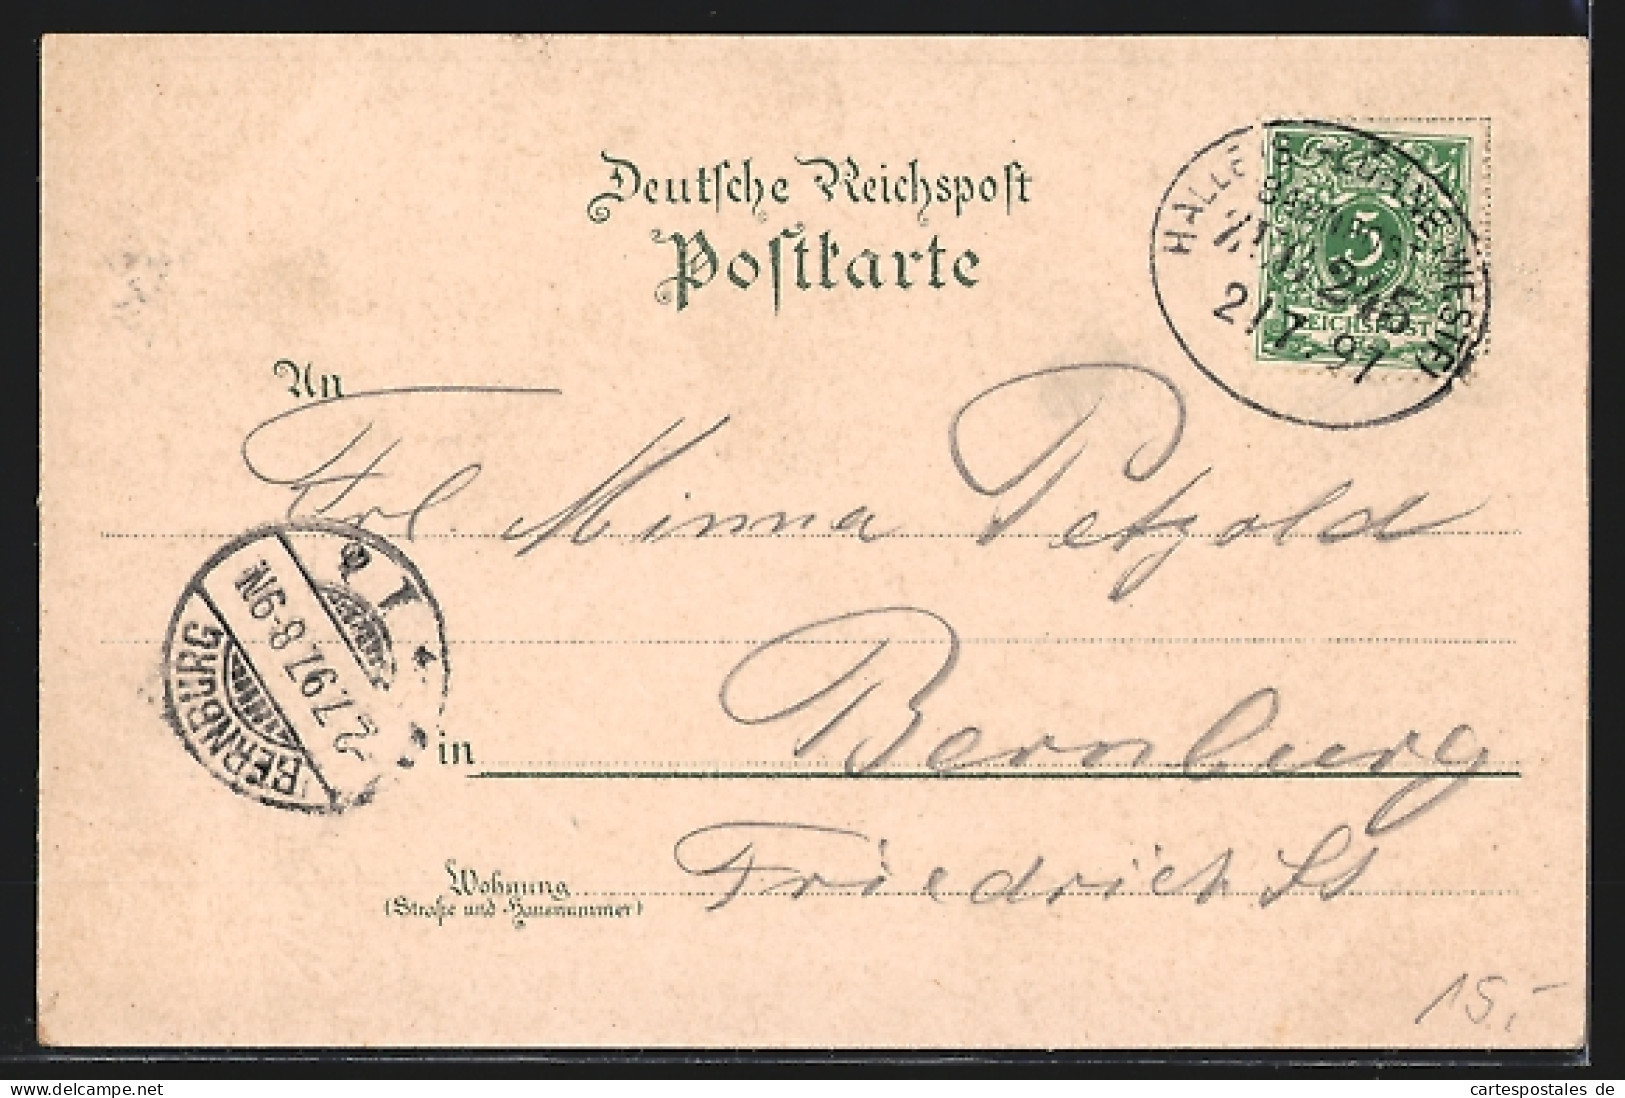 Deutsche Reichspost
Postkarte
HALLE
ZUG 215
2/7.97
5
REICHSPOST
An
Frl. Minna Petzold
BERNBURG
2.7.97. 8-9N.
in Bernburg
Wohnung
(Straße und Hausnummer)
Friedrich St
15,-
hrb1896
cartespostales de